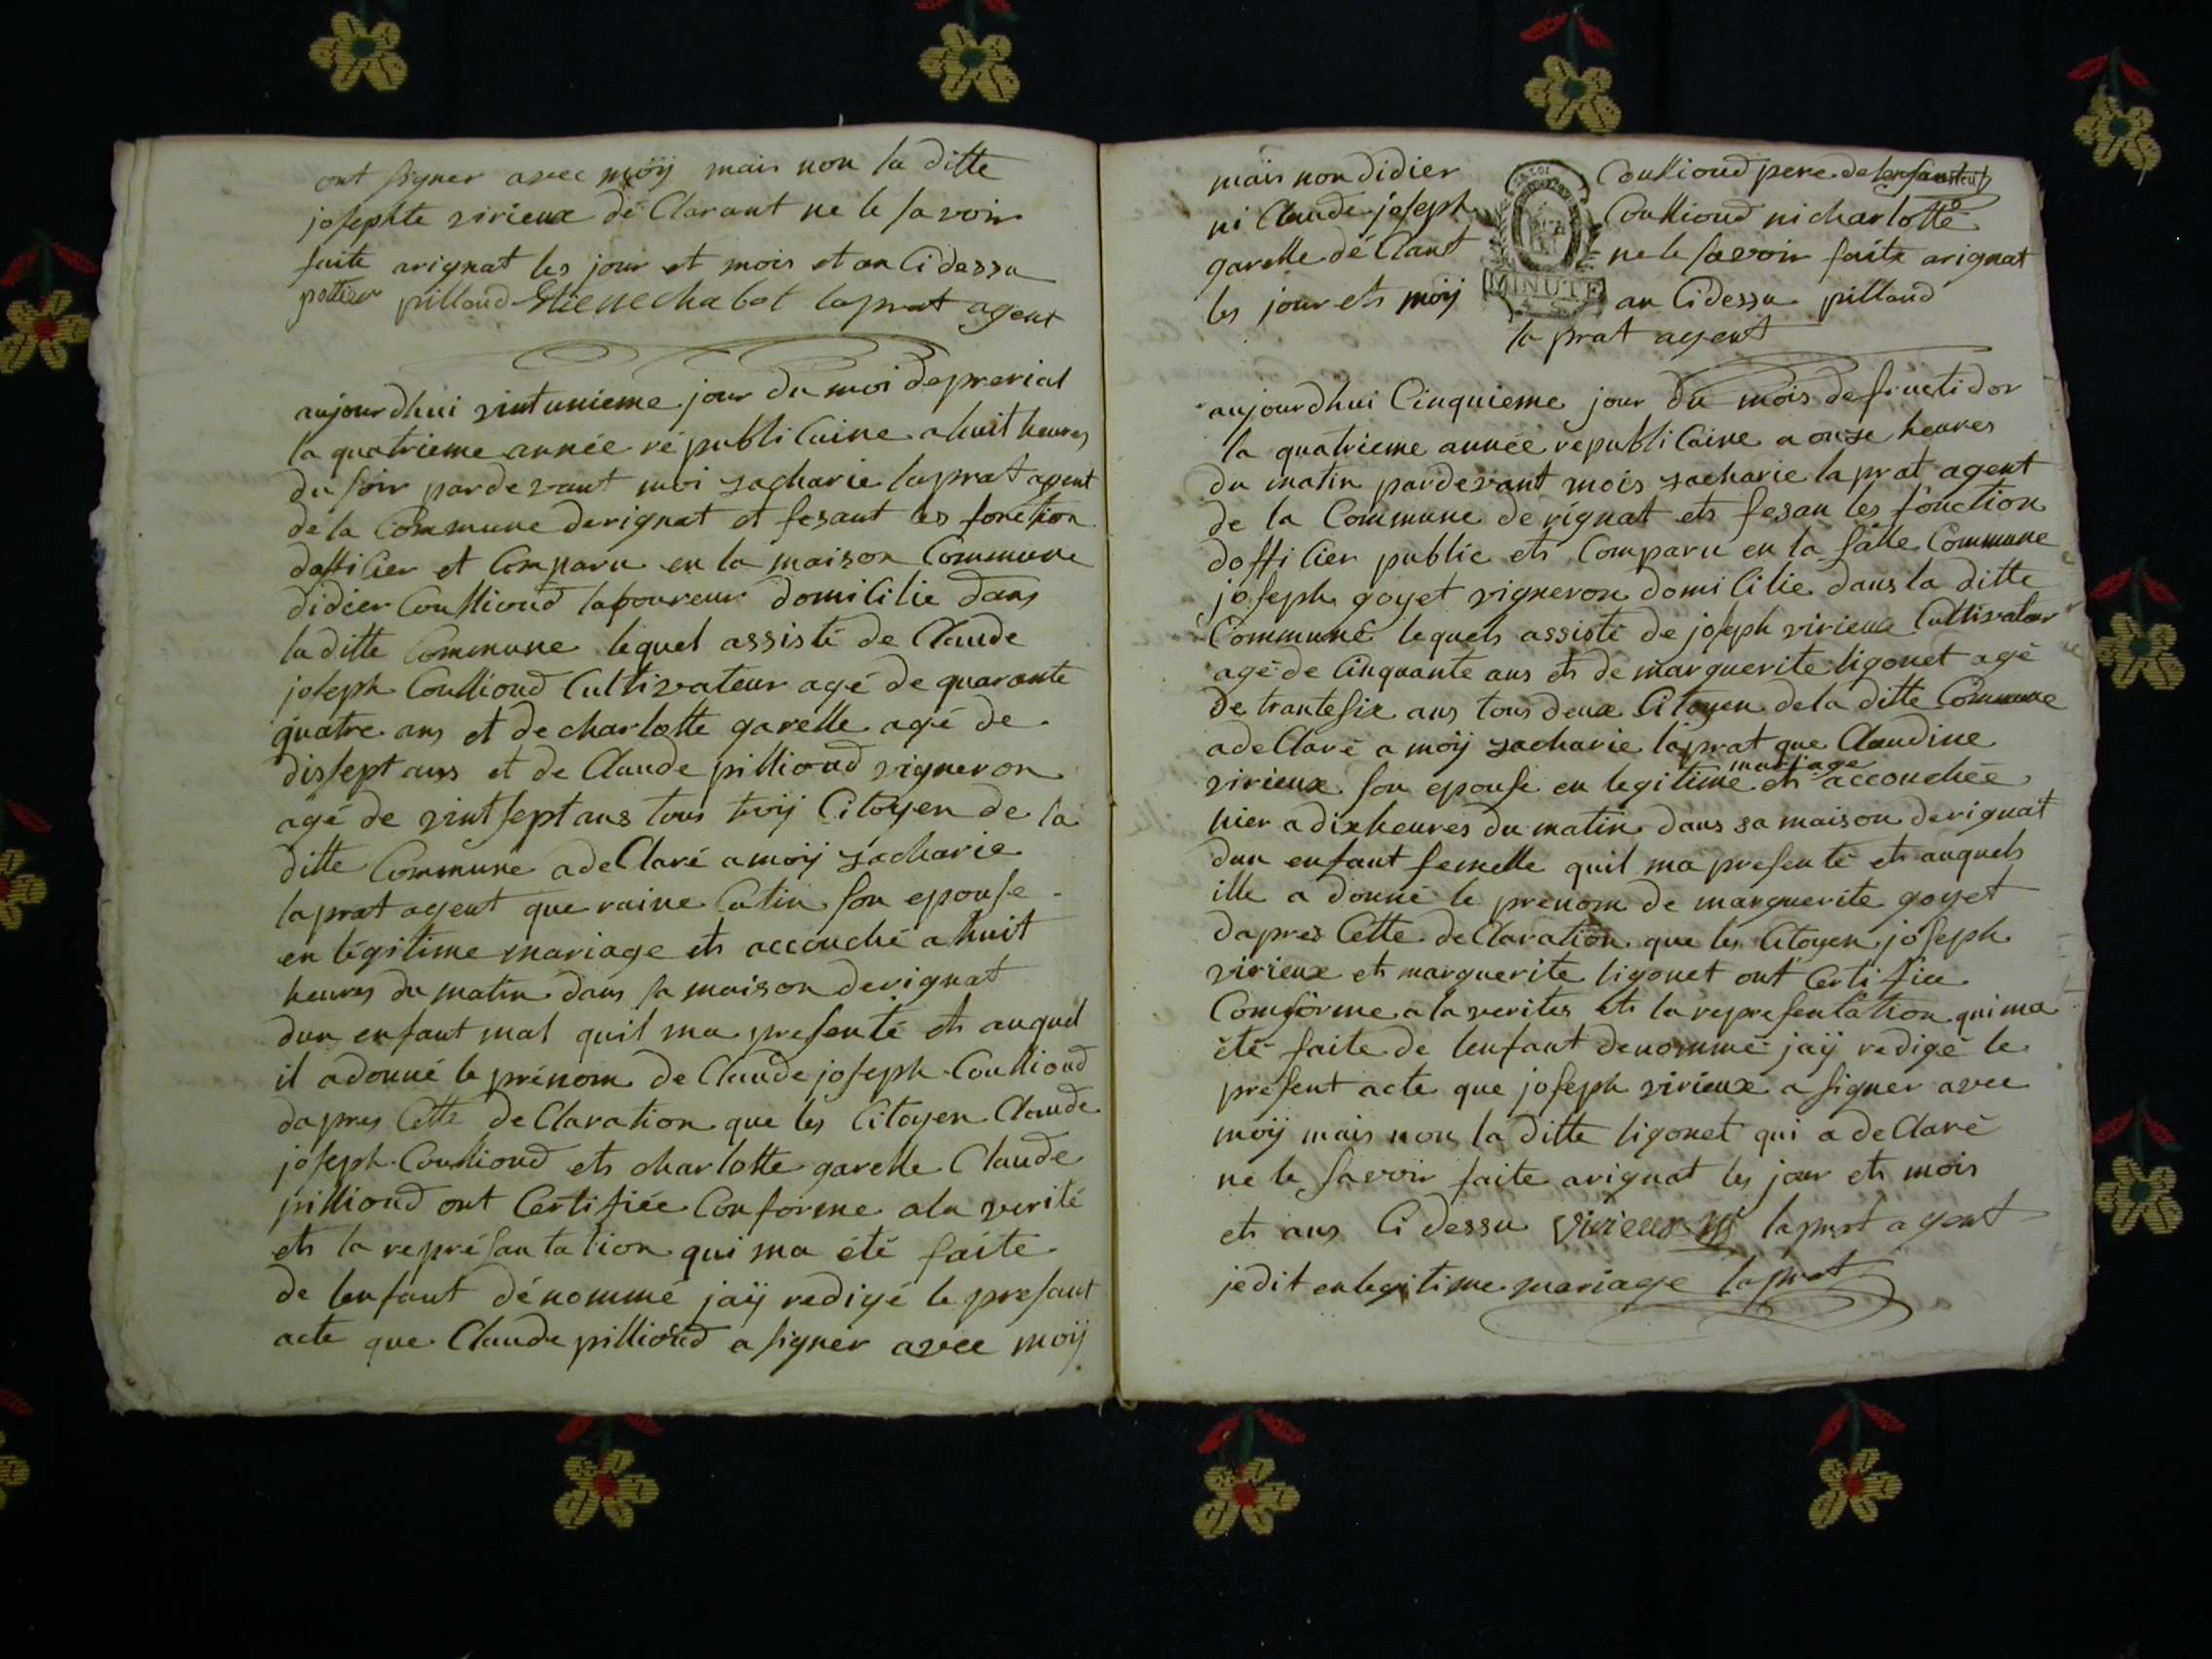 ont signer avec moÿ mais non la ditte
josephte virieux dé Clarant ne le savoir
faite arignat les jour et mois et an Cidessu
pottier pilland Etienechabot laprat agent
aujourdhui vintunieme jour du moi deprerial
la quatrieme année républiCaine ahuit heures
du soir pardevant moi zacharie laprat agent
de la Commune derignat et fesant les fonction
dofficier et Comparu en la maison Commune
didier Coullioud laboureur domiCilie dans
la ditte Commune lequel assisté de Claude
joseph Coullioud Cultivateur agé de quarante
quatre ans et de charlotte garelle agé de
dissept ans et de Claude pillioud vigneron
agé de vintsept ans tous troij Citoyen de la
ditte Commune adeClaré amoÿ zacharie
laprat agent que raine Catin son epouse
en légitime mariage et accouché ahuit
heures du matin dans sa maison derignat
dun enfant mal quil ma presenté et auquel
il adonné le prénom de Claude joseph Coullioud
dapres Cette deClaration que les Citoyen Claude
joseph Coullioud et charlotte garelle Claude
pillioud ont Certifiée Conforme ala verité
et la représantation qui ma été faite
de lenfant dénommé jaÿ redigé le presant
acte que Claude pillioud a signer avec moÿ
mais non didier Coullioud pere de lenfant
ni Claude joseph Coullioud ni charlotte
garelle dé Clant ne le savoir faite arignat
les jour et moÿ an Cidessu pilland
MINUTE
la prat agent
aujourdhui Cinquieme jour du mois defructidor
la quatrieme année republiCaine a onze heures
du matin pardevant mois zacharie la prat agent
de la Commune de rignat et fesan les fonction
doffiCier public et Comparu en la salle Commune
joseph goyet vigneron domiCilie dans la ditte
Commune lequels assisté de joseph virieux Cultivateur
agé de Cinquante ans et de marguerite ligonet agé
de trantesix ans tous deux Citoyen dela ditte Commune
adeClaré a moÿ zacharie laprat que Claudine
mariage
virieux son epouse en legitime et accouchée
hier a dixheures du matin dans sa maison derignat
dun enfant femelle quil ma presenté et auquels
ille a donné le prenom de marguerite goyet
dapres Cette deClaration que les Citoyen joseph
virieux et marguerite ligonet ont Certifiee
Comforme a la verites et la representation quima
été faite de lenfant denommé jaÿ redigé le
present acte que joseph virieux a signer avec
moÿ mais non la ditte ligonet qui a deClaré
ne le savoir faite arignat les jour et mois
et ans Cidessu virieux laprat agent
jedit enlegitime mariage laprat